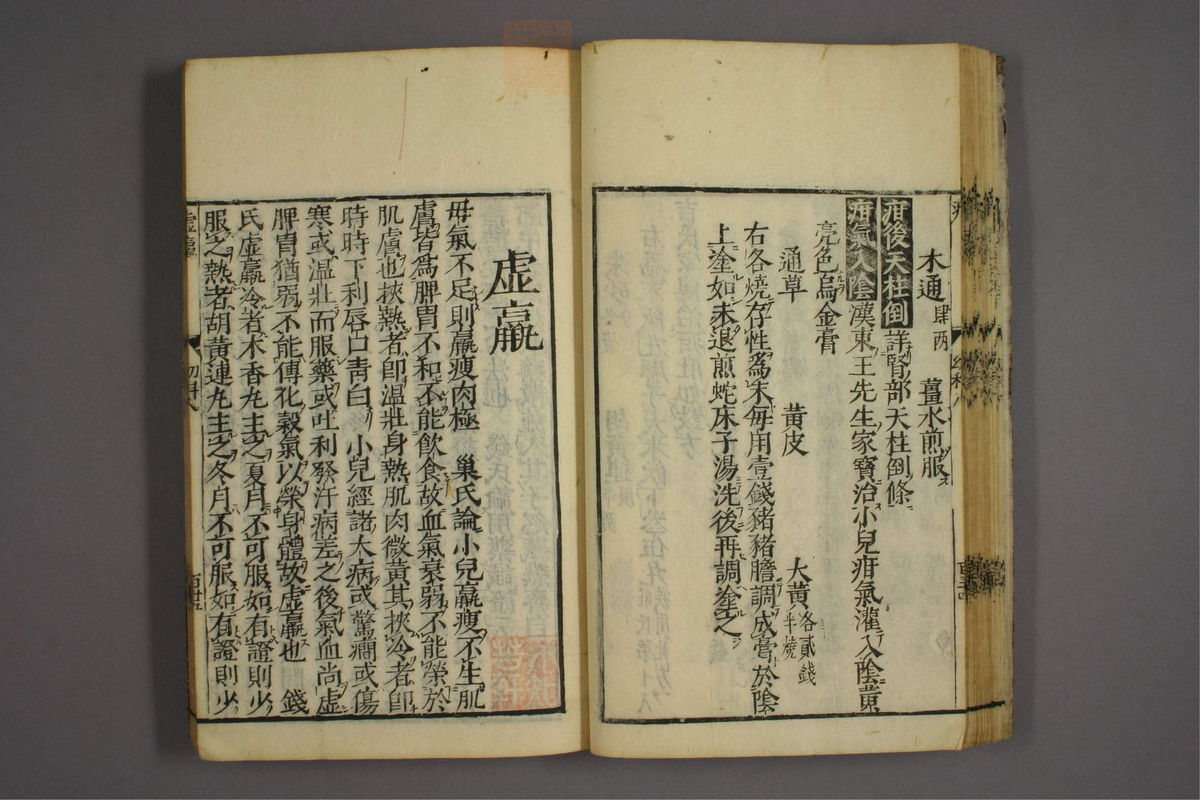 木通肆兩 薑水煎服
疳後天柱倒詳腎部天柱倒條
疳氣入陰漢東王先生家寳治小兒疳氣灌入陰黃
亮色烏金膏
通草 黃皮 大黃各貳錢半燒
右各燒存性爲末每用壹錢豬豬膽調成膏於陰
上塗如未退煎蛇床子湯洗後再調塗之
虛羸
毋氣不足則羸瘦肉極 巢氏論小兒羸瘦不生肌
膚皆爲脾胃不和不能飲食故血氣衰弱不能榮於
肌膚也挾熱者卽溫壯身熱肌肉微黃其挾冷者卽
時時下利唇口青白 小兒經諸大病或驚癇或傷
寒或溫壯而服藥或吐利發汗病差之後氣血尚虛
脾胃猶弱不能傳化穀氣以榮身體故虛羸也 錢
氏虛羸冷者木香丸主之夏月不可服如有證則少
服之熱者胡黃連丸主之冬月不可服如有證則少
虛羸 幼科八